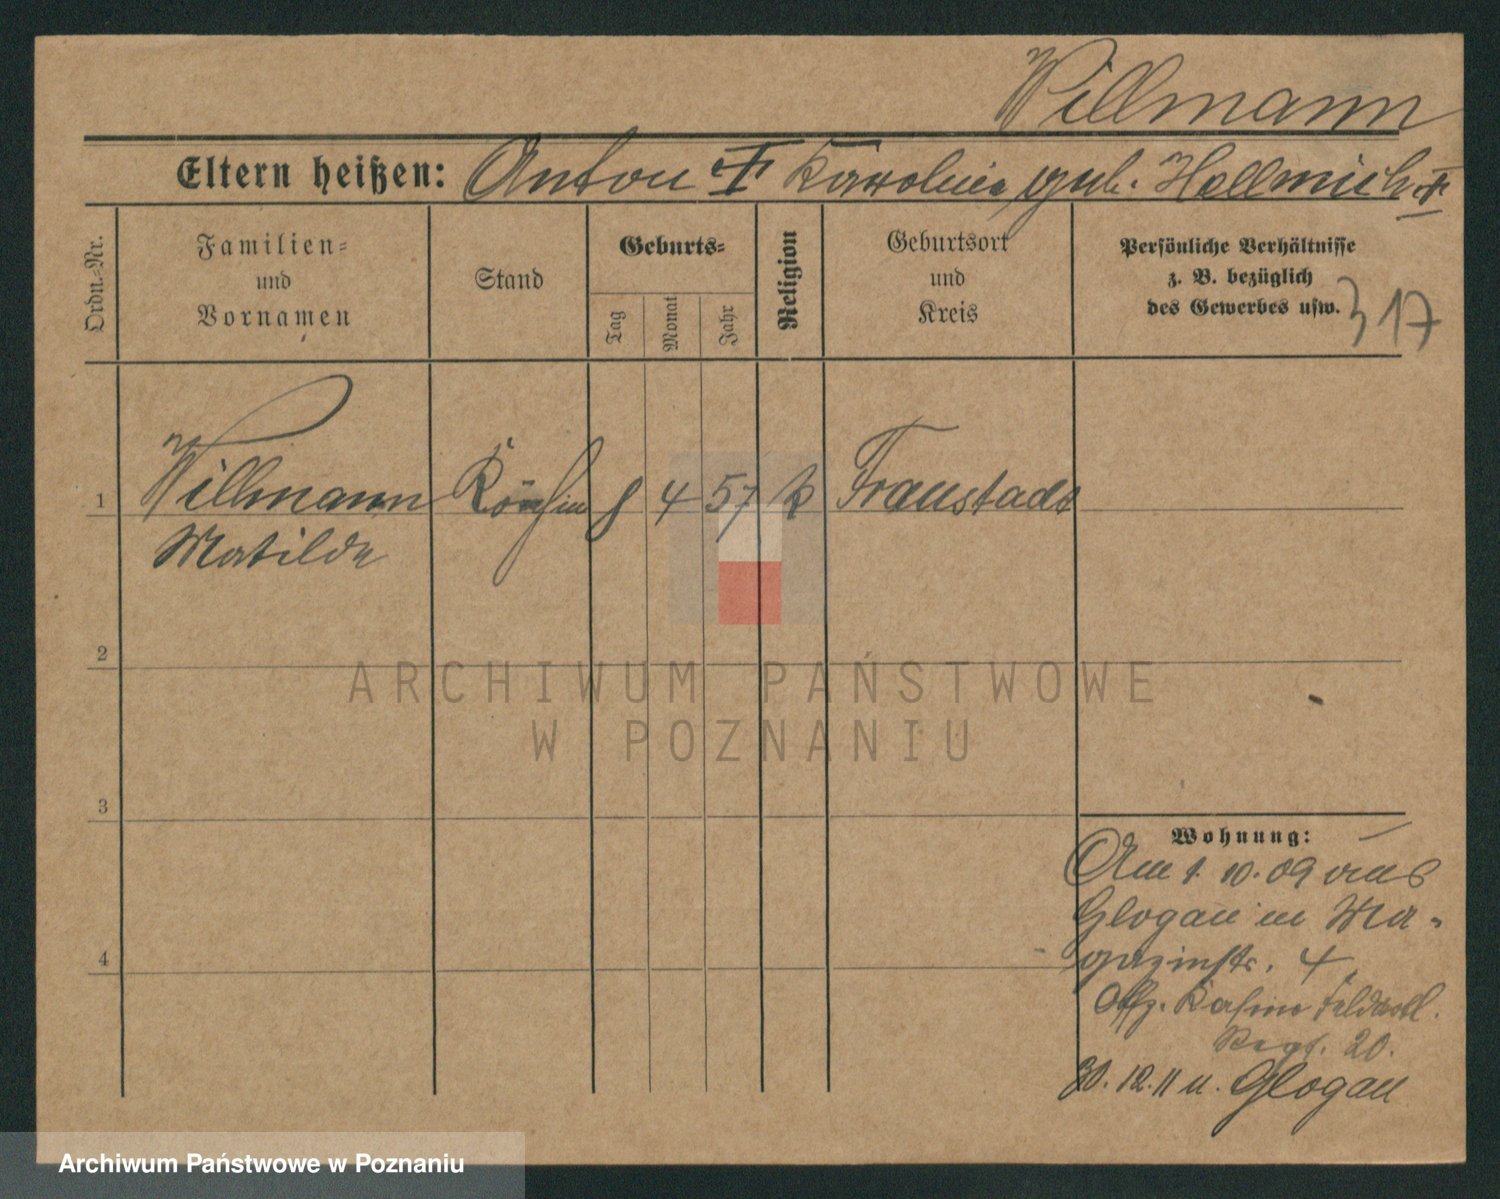 Willmann
Eltern heißen: Anton † Karoline geb. Hellmich †
Ordn.-Nr.
Familien-
und
Vornamen
Stand
Geburts-
Tag
Monat
Jahr
Religion
Geburtsort
und
Kreis
Persönliche Verhältnisse
z. B. bezüglich
des Gewerbes usw.
317
1 Willmann Köchin 8 4 57 k Fraustadt
Matilde
2
3
4
Wohnung:
Am 1. 10. 09 aus
Glogau in Ma-
gazinstr. 4
Offz. Kasino Feldartl.
Regt. 20.
30. 12. 11 n. Glogau
ARCHIWUM PAŃSTWOWE
W POZNANIU
Archiwum Państwowe w Poznaniu